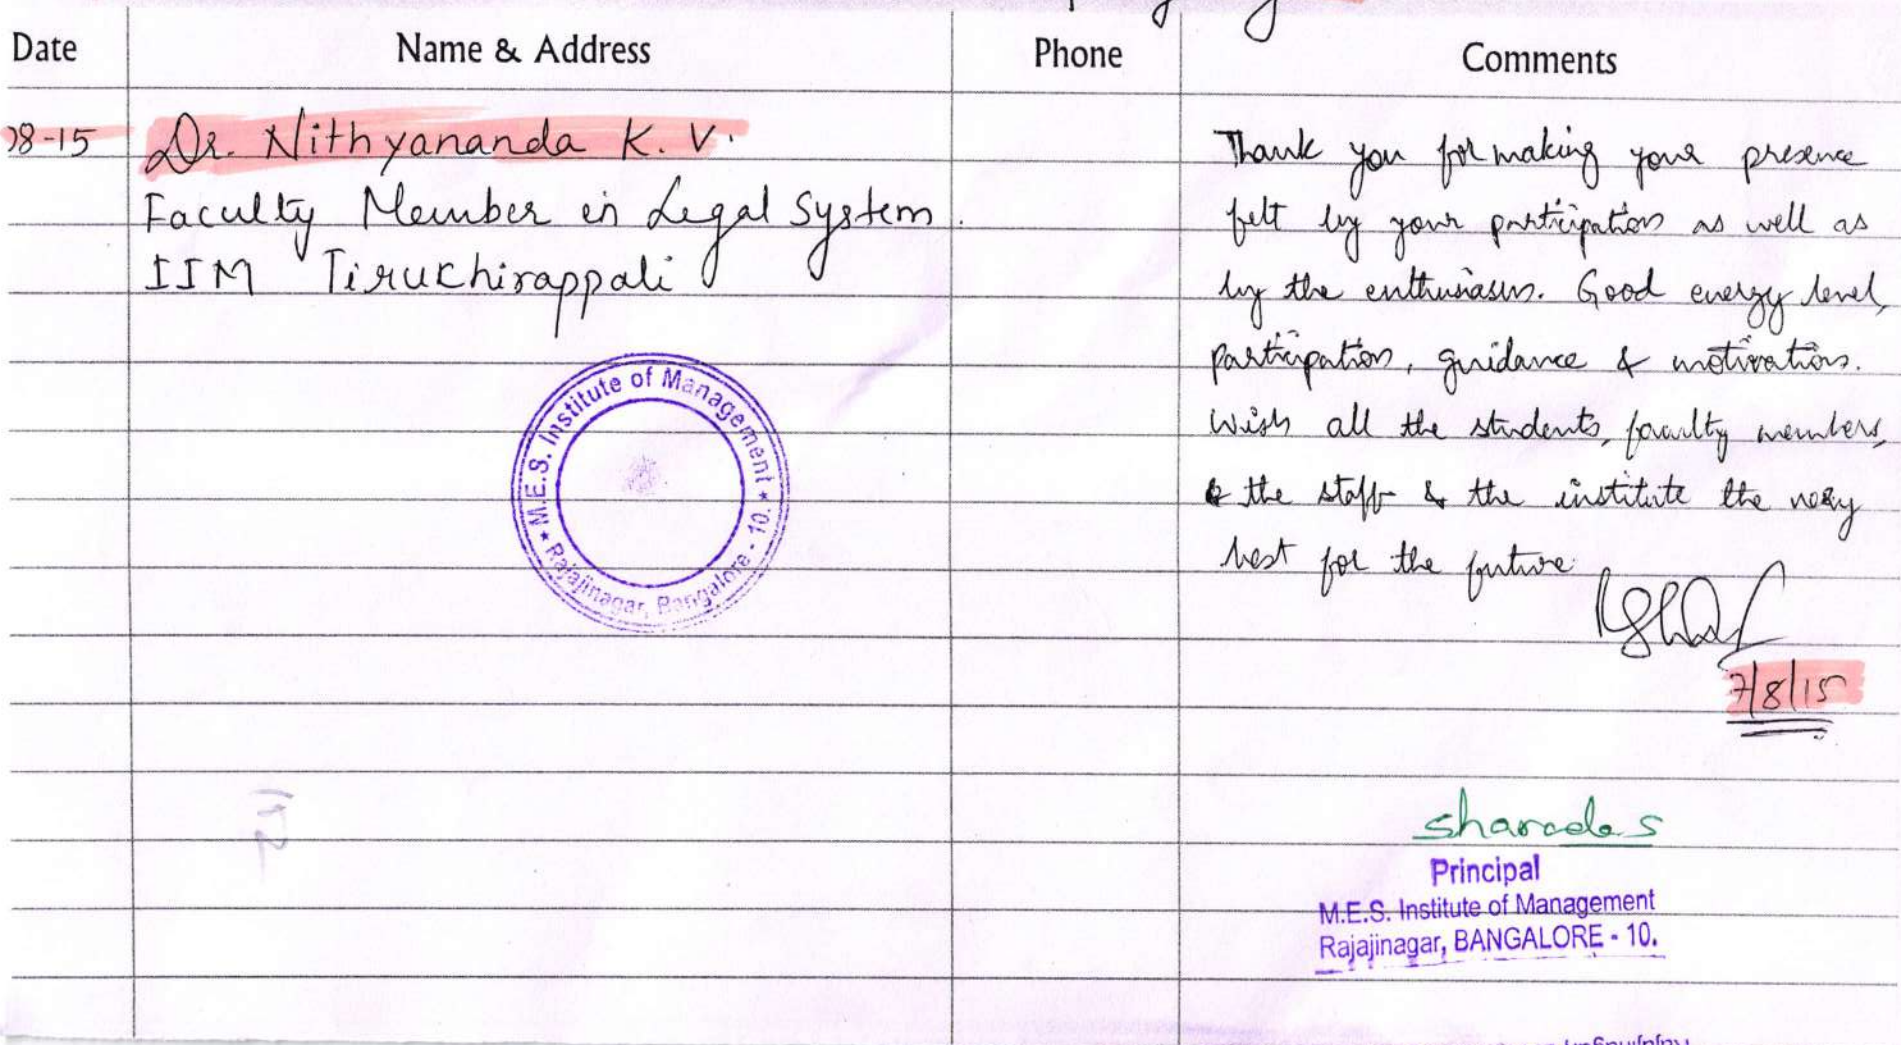 Date Name & Address Phone Comments
08-15 Dr. Nithyananda K. V.
Faculty Member in Legal System.
IIM Tiruchirappali
Thank you for making your presence
felt by your participation as well as
by the enthusiasm. Good energy level,
participation, guidance & motivation.
Wish all the students, faculty members,
& the staff & the institute the very
best for the future.
7/8/15
★ M.E.S. Institute of Management ★
Rajajinagar, Bangalore - 10.
Sharada S
Principal
M.E.S. Institute of Management
Rajajinagar, BANGALORE - 10.